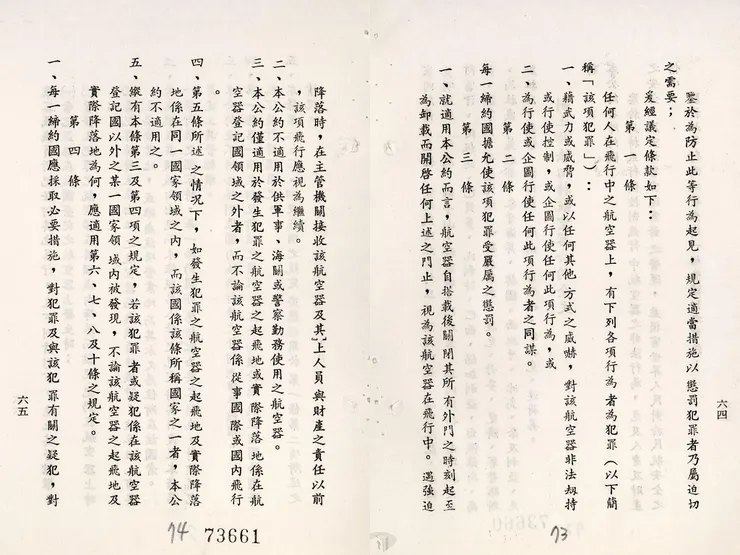 鑒於為防止此等行為起見，規定適當措施以懲罰犯罪者乃屬迫切
之需要；
爰經議定條款如下：
第一條
任何人在飛行中之航空器上，有下列各項行為者為犯罪（以下簡
稱「該項犯罪」）：
一、藉武力或威脅，或以任何其他方式之威嚇，對該航空器非法劫持
或行使控制，或企圖行使任何此項行為，或
二、為行使或企圖行使任何此項行為者之同謀。
第二條
每一締約國擔允使該項犯罪受嚴厲之懲罰。
第三條
一、就適用本公約而言，航空器自搭載後關閉其所有外門之時刻起至
為卸載而開啟任何上述之門止，視為該航空器在飛行中。遇強迫
六四
73
降落時，在主管機關接收該航空器及其上人員與財產之責任以前
，該項飛行應視為繼續。
二、本公約不適用於供軍事、海關或警察勤務使用之航空器。
三、本公約僅適用於發生犯罪之航空器之起飛地或實際降落地係在航
空器登記國領域之外者，而不論該航空器係從事國際或國內飛行
。
四、第五條所述之情況下，如發生犯罪之航空器之起飛地及實際降落
地係在同一國家領域之內，而該國係該條所稱國家之一者，本公
約不適用之。
五、縱有本條第三及第四項之規定，若該犯罪者或疑犯係在該航空器
登記國以外之某一國家領域內被發現，不論該航空器之起飛地及
實際降落地為何，應適用第六、七、八及十條之規定。
第四條
一、每一締約國應採取必要措施，對犯罪及與該犯罪有關之疑犯，對
六五
74
73661